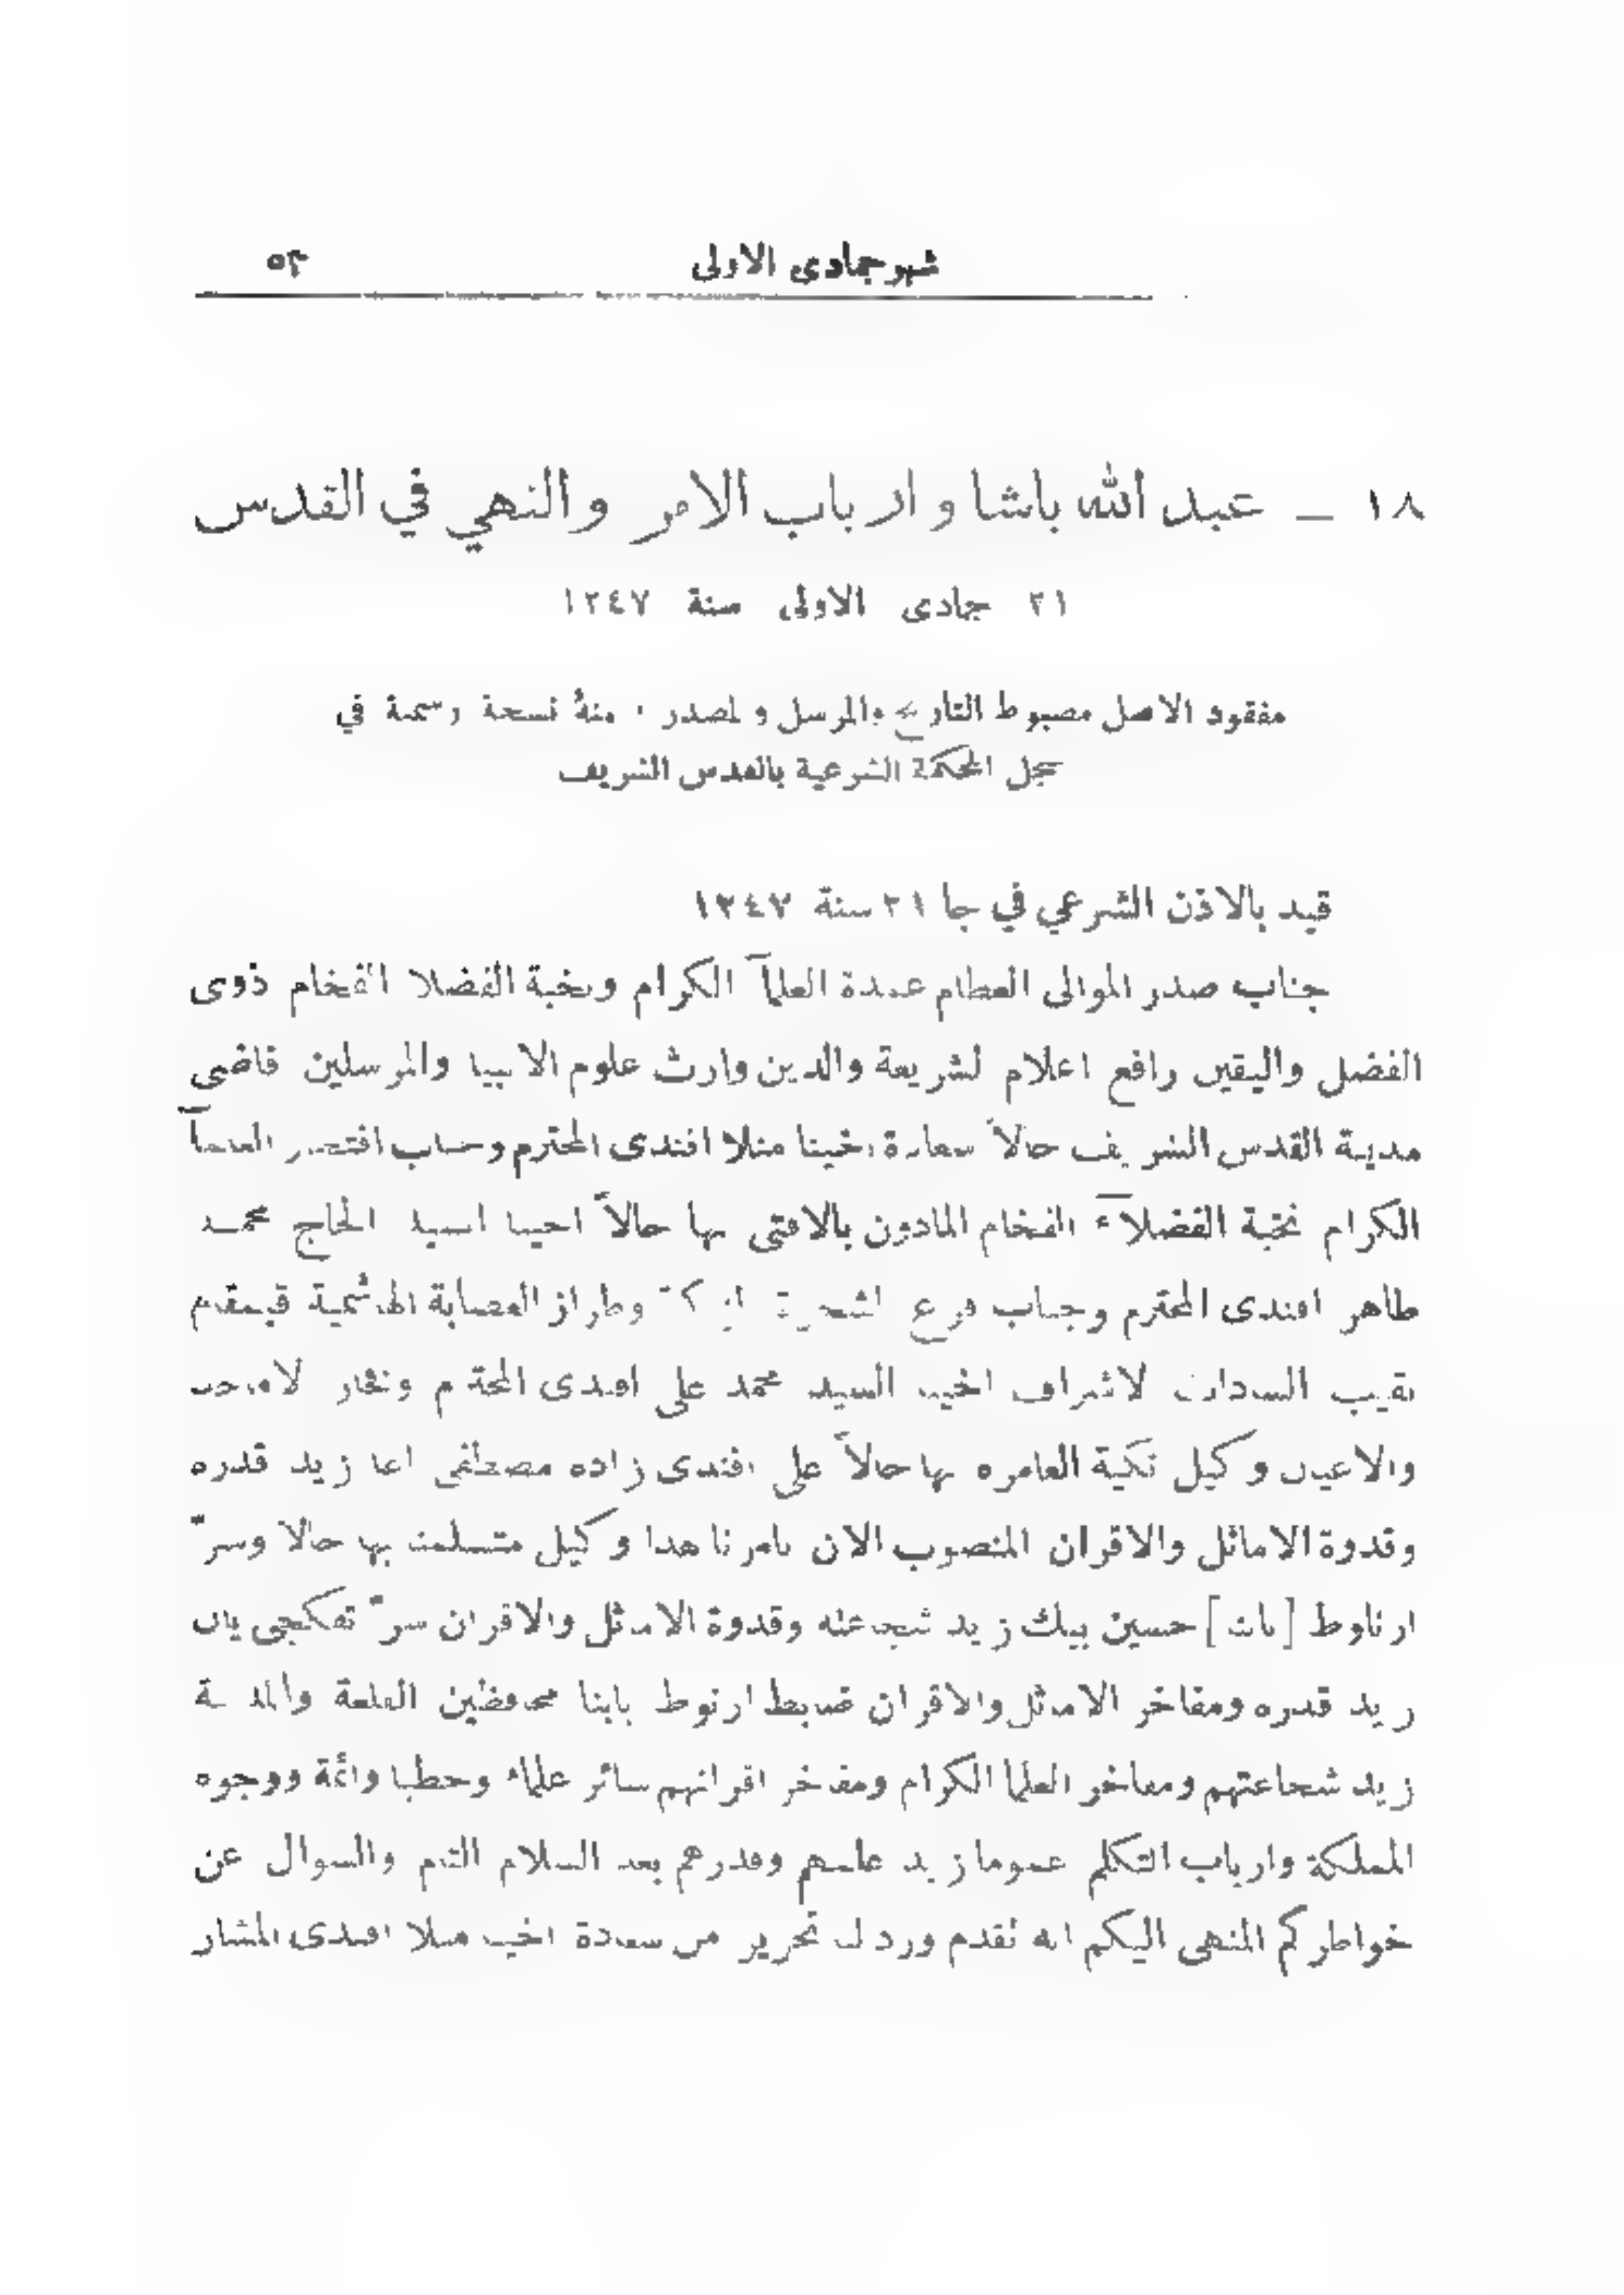 شهر جمادى الاولى ٥٣
١٨ — عبد الله باشا وارباب الامر والنهي في القدس
٢١ جمادى الاولى سنة ١٢٤٧
مفقود الاصل مضبوط التاريخ والمرسل والمصدر ، منهُ نسخة رسمية في
سجل المحكمة الشرعية بالقدس الشريف
قيد بالاذن الشرعي في جا ٢١ سنة ١٢٤٧
جناب صدر الموالى العظام عمدة العلمآ الكرام ونخبة الفضلا الفخام ذوى
الفضل واليقين رافع اعلام الشريعة والدين وارث علوم الانبيا والمرسلين قاضى
مدينة القدس الشريف حالاً سعادة اخينا منلا افندى المحترم وجناب افتخار العلمآ
الكرام نخبة الفضلآء الفخام المادون بالافتى بها حالاً اخينا السيد الحاج محمد
طاهر افندى المحترم وجناب فرع الشجرة وطراز العصابة الهاشمية قيمقام
نقيب السادات الاشراف اخينا السيد محمد على افندى المحترم وفخار الاماجد
والاعيان وكيل تكية العامره بها حالاً على افندى زاده مصطفى اغا زيد قدره
وقدوة الاماثل والاقران المنصوب الان بامرنا هدا وكيل متسلمنا بها حالا وسرّ
ارناوط [بابنا] حسين بيك زيد شجاعته وقدوة الاماثل والاقران سرّ تفكجى باشى
زيد قدره ومفاخر الاماثل والاقران ضابط ارنوط بابنا محافظين القلعة والمدينة
زيد شجاعتهم ومفاخر العلما الكرام ومفاخر اقرانهم سائر علماء وخطبا وائمة ووجوه
المملكة وارباب التكلم عموما زيد علمهم وقدرهم بعد السلام التام والسوال عن
خواطركم المنهى اليكم انه تقدم ورد لنا تحرير من سعادة اخينا منلا افندى المشار